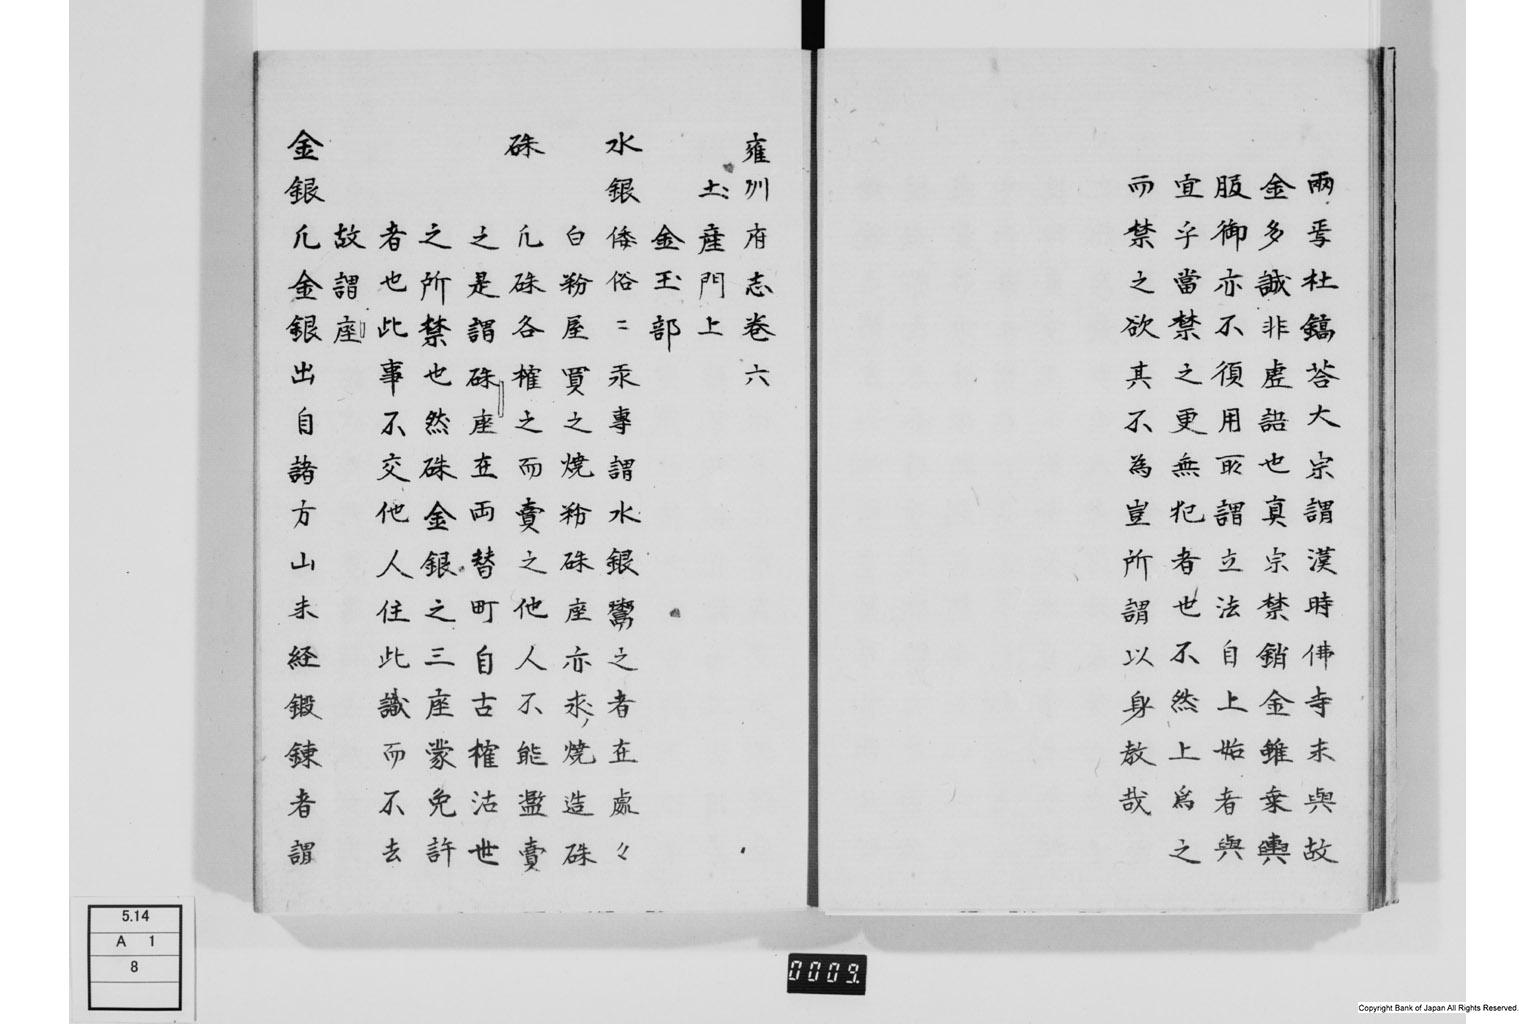 兩焉杜鎬荅大宗謂漢時佛寺未與故
金多誠非虚語也真宗禁銷金雖乗輿
服御亦不須用所謂立法自上始者與
宜乎當禁之更無犯者也不然上爲之
而禁之欲其不為豈所謂以身教哉
雍州府志巻六
土産門上
金玉部
水銀 倭俗ニ汞専謂水銀鬻之者在處々
白粉屋買之焼粉硃座亦求焼造硃
硃 凢硃各榷之而賣之他人不能濫賣
之是謂硃座在両替町自古榷沽世
之所禁也然硃金銀之三座蒙免許
者也此事不交他人住此識而不去
故謂座
金銀 凢金銀出自諸方山未経鍛錬者謂
5.14
A 1
8
0009
Copyright Bank of Japan All Rights Reserved.